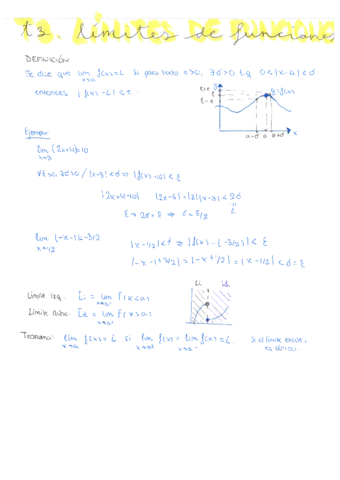 t3. Límites de funciones
DEFINICIÓN
Se dice que lim f(x)=L si para todo ε>0, ∃δ>0 t.q. 0<|x-a|<δ
x→a
entonces |f(x)-L|<ε
L+ε
L
L-ε
f(x)
a-δ a a+δ x
Ejemplo:
lim (2x+4)=10
x→3
∀ε>0, ∃δ>0 / |x-3|<δ ⇒ |f(x)-10|<ε
|2x+4-10| |2x-6|=|2||x-3|<2δ
ε
ε=2δ ⇒ δ=ε/2
lim (-x-1)=-3/2
x→1/2
|x-1/2|<δ ⇒ |f(x)-(-3/2)|<ε
|-x-1+3/2|=|-x+1/2|=|x-1/2|<δ=ε
Li Ld
Límite izq. Li = lim f(x<a)
x→a⁻
Límite dcho. Ld = lim f(x>a)
x→a⁺
Teorema: lim f(x)=L si lim f(x)=lim f(x)=L. Si el límite existe,
x→a x→a⁺ x→a⁻ es único.